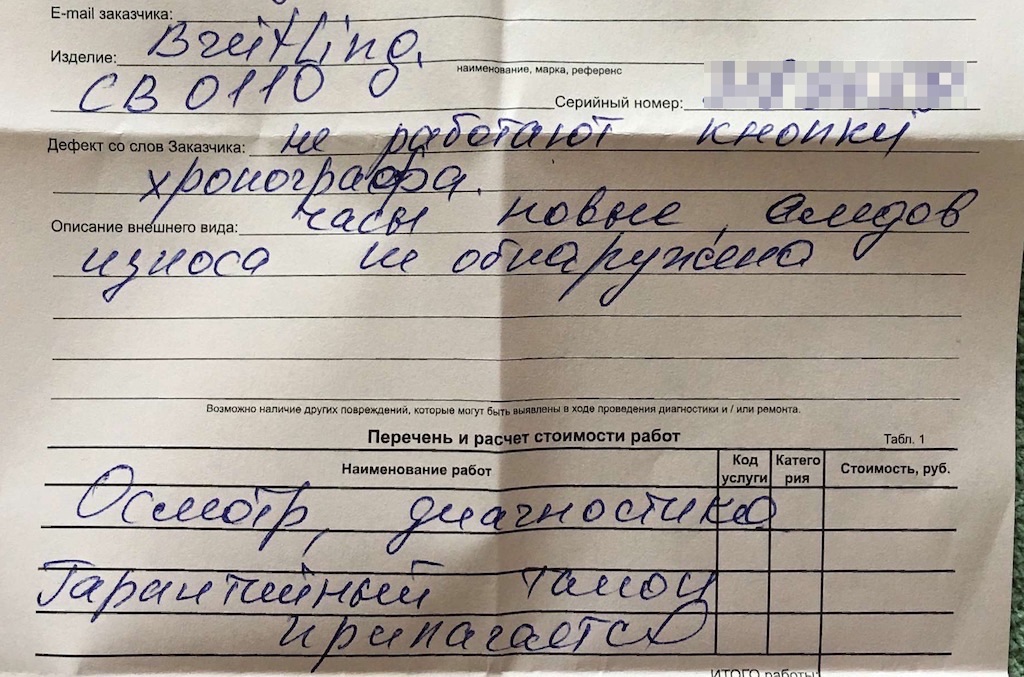 E-mail заказчика:
Изделие: Breitling,
наименование, марка, референс
CB 0110 Серийный номер:
Дефект со слов Заказчика: не работают кнопки
хронографа.
Описание внешнего вида: часы новые, следов
износа не обнаружено
Возможно наличие других повреждений, которые могут быть выявлены в ходе проведения диагностики и / или ремонта.
Перечень и расчет стоимости работ Табл. 1
Наименование работ Код услуги Катего рия Стоимость, руб.
Осмотр, диагностика
Гарантийный талон
прилагается
ИТОГО работы: